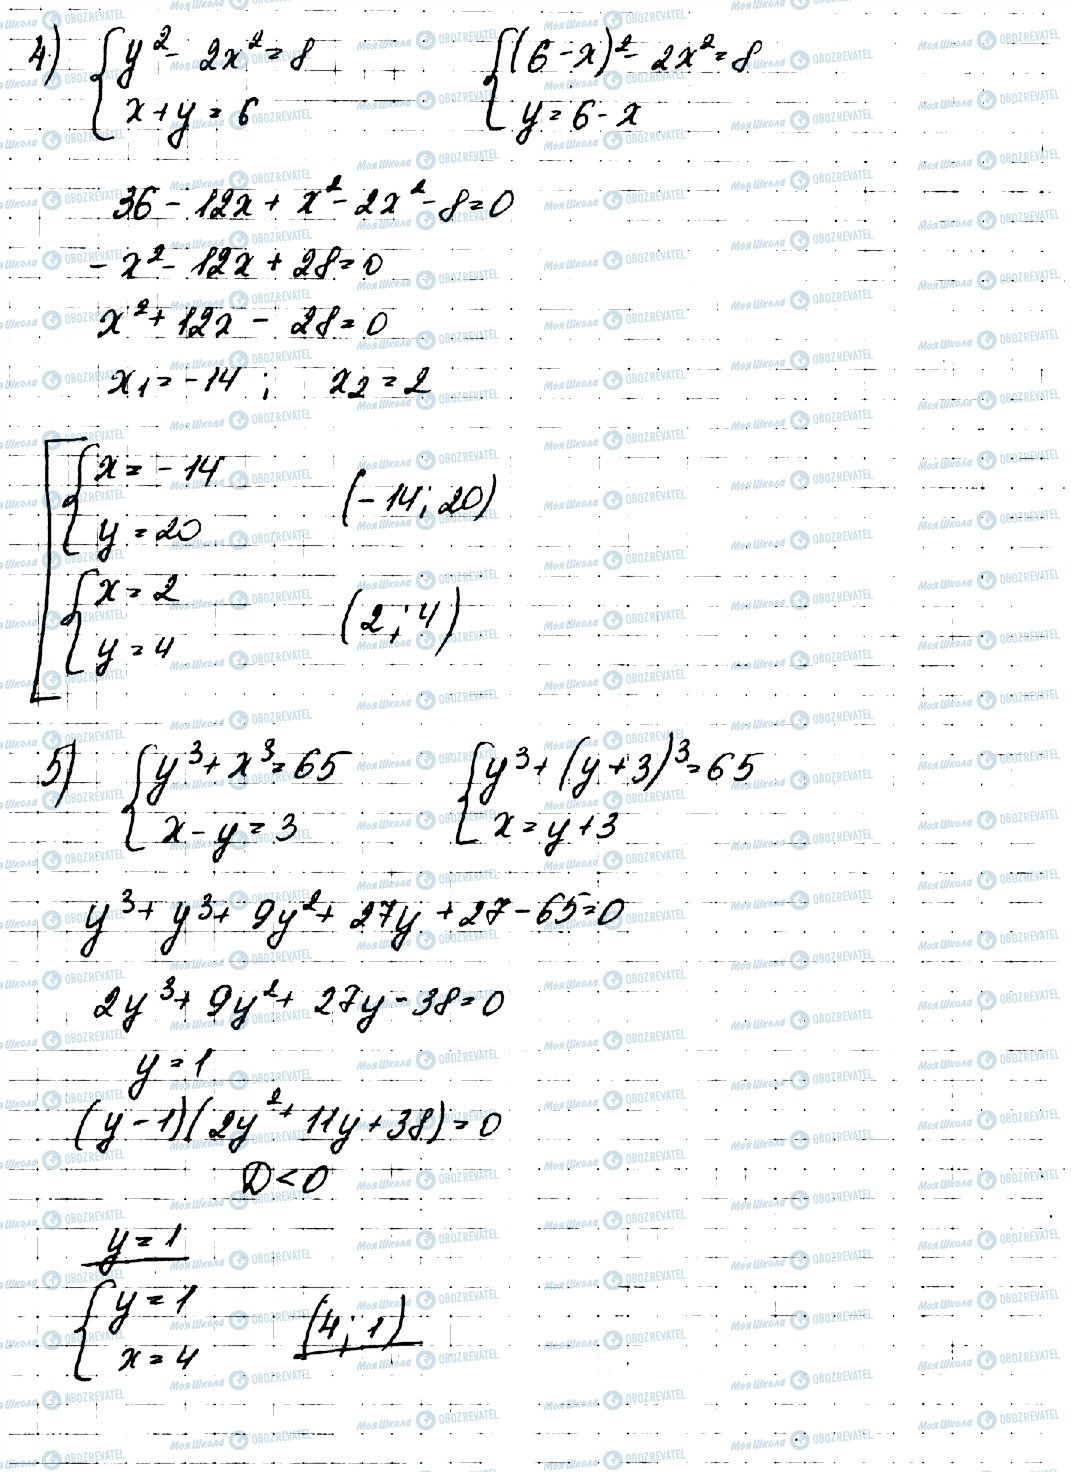 4) { y² - 2x² = 8    { (6-x)² - 2x² = 8
x + y = 6    y = 6 - x
36 - 12x + x² - 2x² - 8 = 0
- x² - 12x + 28 = 0
x² + 12x - 28 = 0
x₁ = -14 ; x₂ = 2
[ { x = -14
y = 20    (-14; 20)
{ x = 2
y = 4    (2; 4)
5) { y³ + x³ = 65    { y³ + (y+3)³ = 65
x - y = 3    x = y + 3
y³ + y³ + 9y² + 27y + 27 - 65 = 0
2y³ + 9y² + 27y - 38 = 0
y = 1
(y - 1)(2y² + 11y + 38) = 0
D < 0
y = 1
{ y = 1
x = 4    (4; 1)
МояШкола OBOZREVATEL